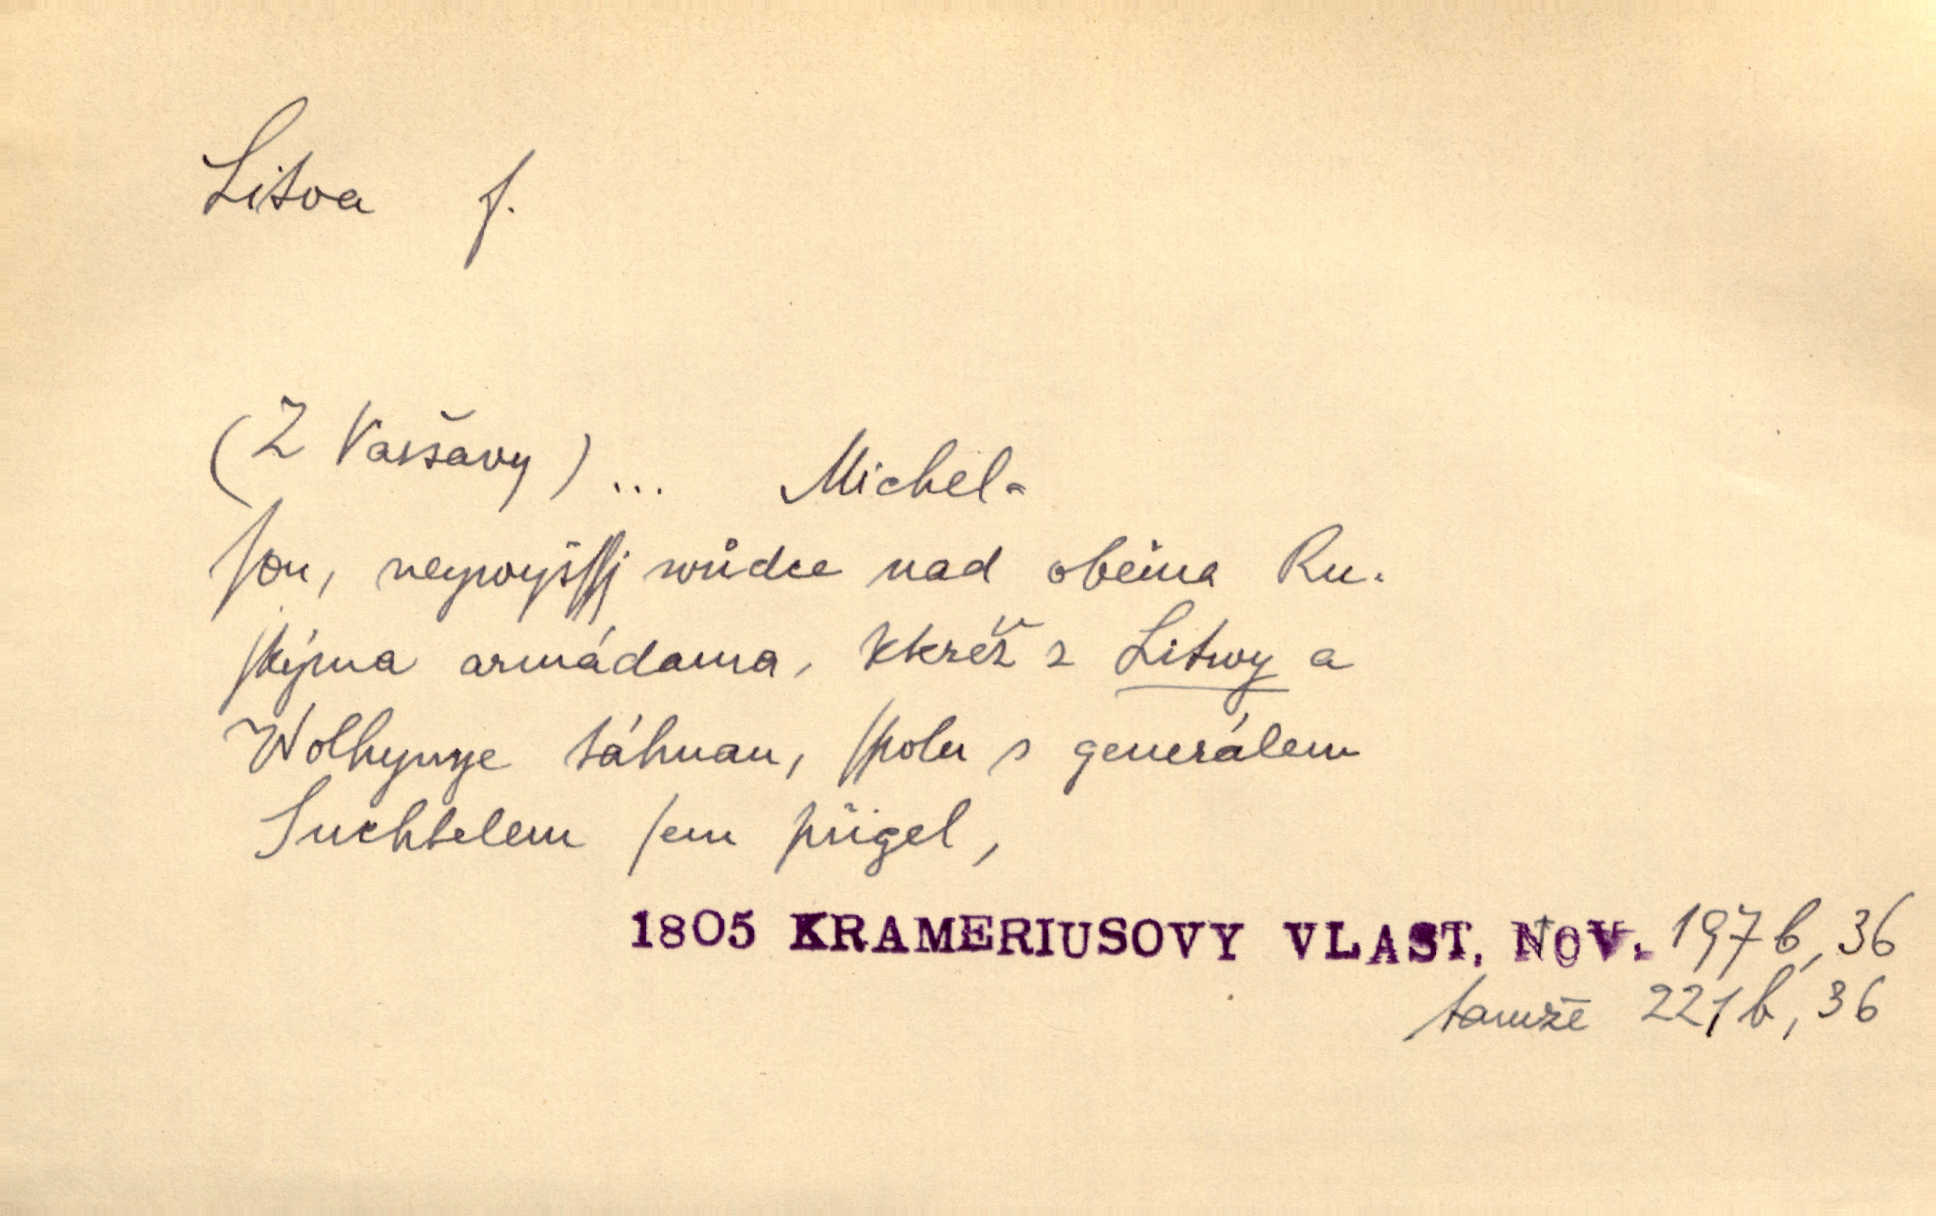 Litva f.
(Z Varšavy) ... Michel-
ſon, neywyšſſj wůdce nad oběma Ru-
ſkýma armádama, kteréž z Litwy a
Wolhynye táhnau, ſpolu s generálem
Suchtelem ſem přigel,
1805 KRAMERIUSOVY VLAST. NOV. 197b, 36
tamže 221b, 36